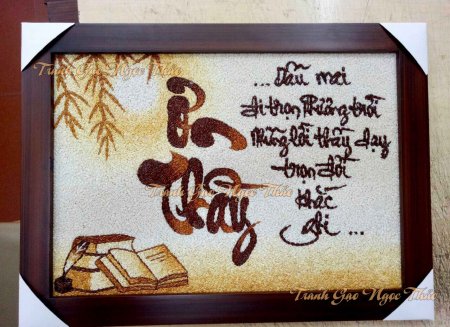 Tranh Gạo Ngọc Thảo
Ơn
Thầy
... Dẫu mai
đi trọn phương trời
Những lời thầy dạy
trọn đời
khắc
ghi ...
Tranh Gạo Ngọc Thảo
Tranh Gạo Ngọc Thảo